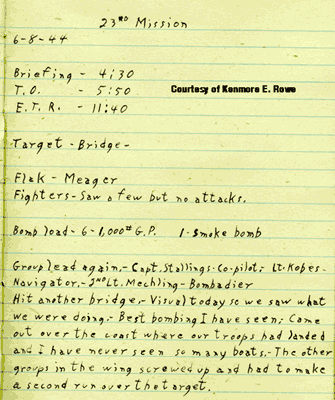 23RD Mission
6-8-44
Briefing - 4:30
T.O. - 5:50
Courtesy of Kenmore E. Rowe
E.T.R. - 11:40
Target - Bridge -
Flak - Meager
Fighters - Saw a few but no attacks.
Bomb load - 6 - 1,000# G.P. 1 - Smoke bomb
Group lead again, - Capt. Stallings - Co-pilot; Lt. Kobes -
Navigator, - 2nd Lt. Mechling - Bombadier
Hit another bridge, - Visual today so we saw what
we were doing. - Best bombing I have seen; Came
out over the coast where our troops had landed
and I have never seen so many boats. - The other
groups in the wing screwed up and had to make
a second run over the target.